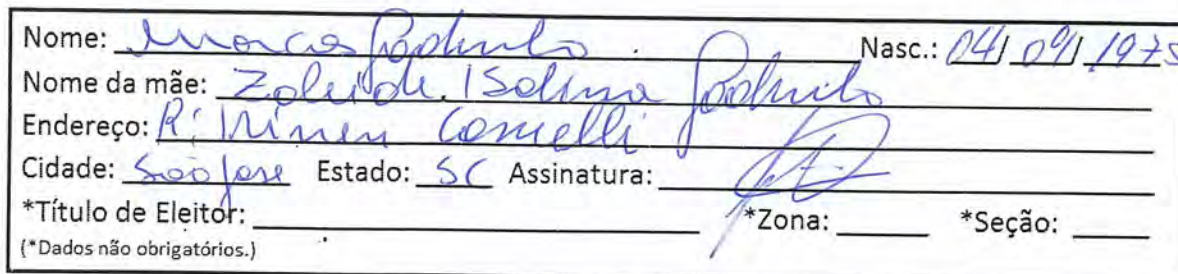 Nome: Marcos Godinho Nasc.: 04/09/1975
Nome da mãe: Zoleide Isolina Godinho
Endereço: R: Irineu Comelli
Cidade: São José Estado: SC Assinatura:
*Título de Eleitor: *Zona: *Seção:
(*Dados não obrigatórios.)